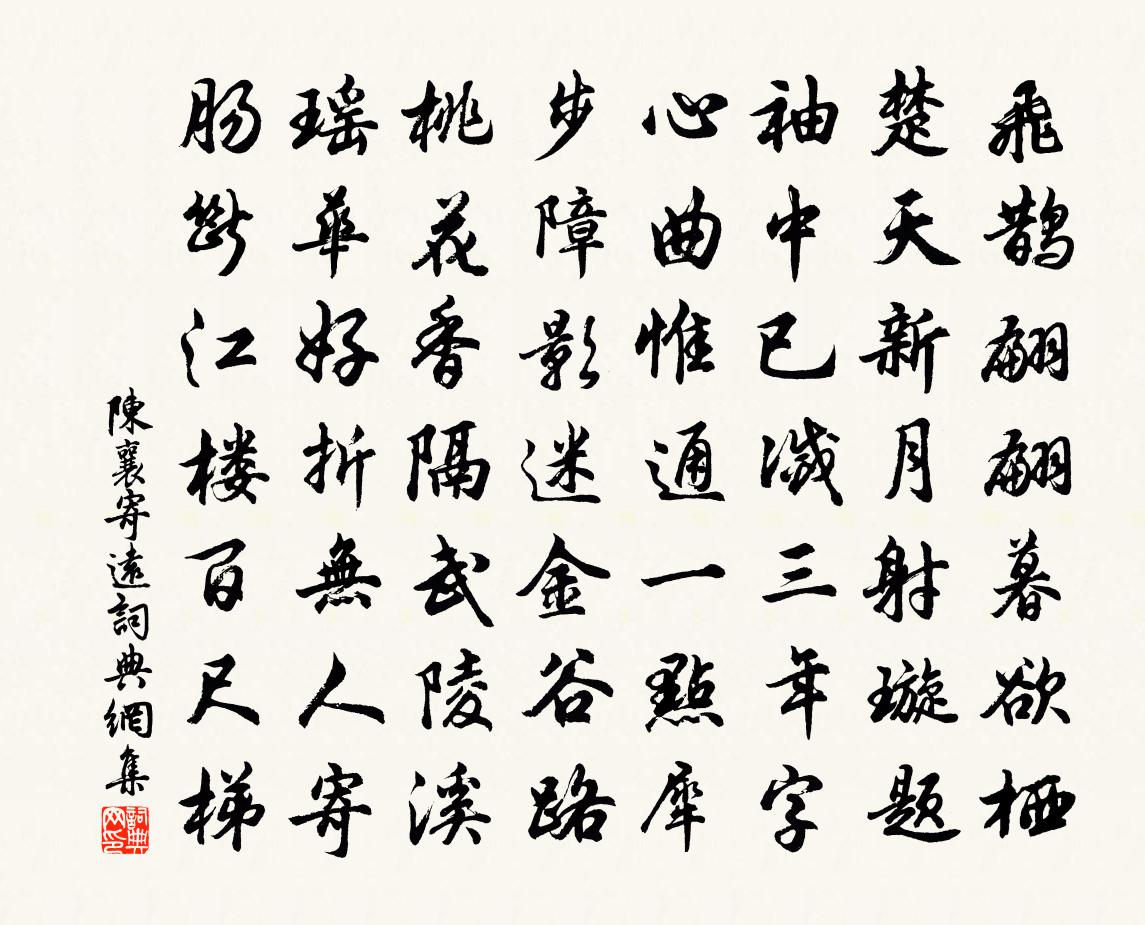 飛鵲翩翩暮欲栖
楚天新月射璇題
袖中已滅三年字
心曲惟通一點犀
步障影迷金谷路
桃花香隔武陵溪
瑶華好折無人寄
肠斷江楼百尺梯
陳襄寄遠詞典網集
詞典網印